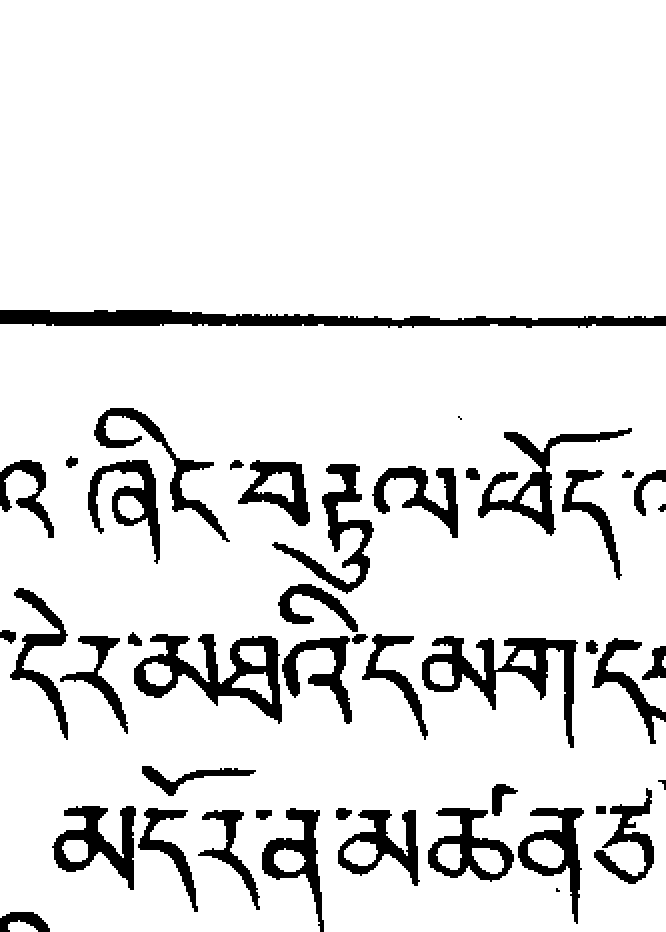 ཞིང་བརྟུལ་ཕོད་
དེར་མཐའི་དམག་
མདོར་ན་མཚན་